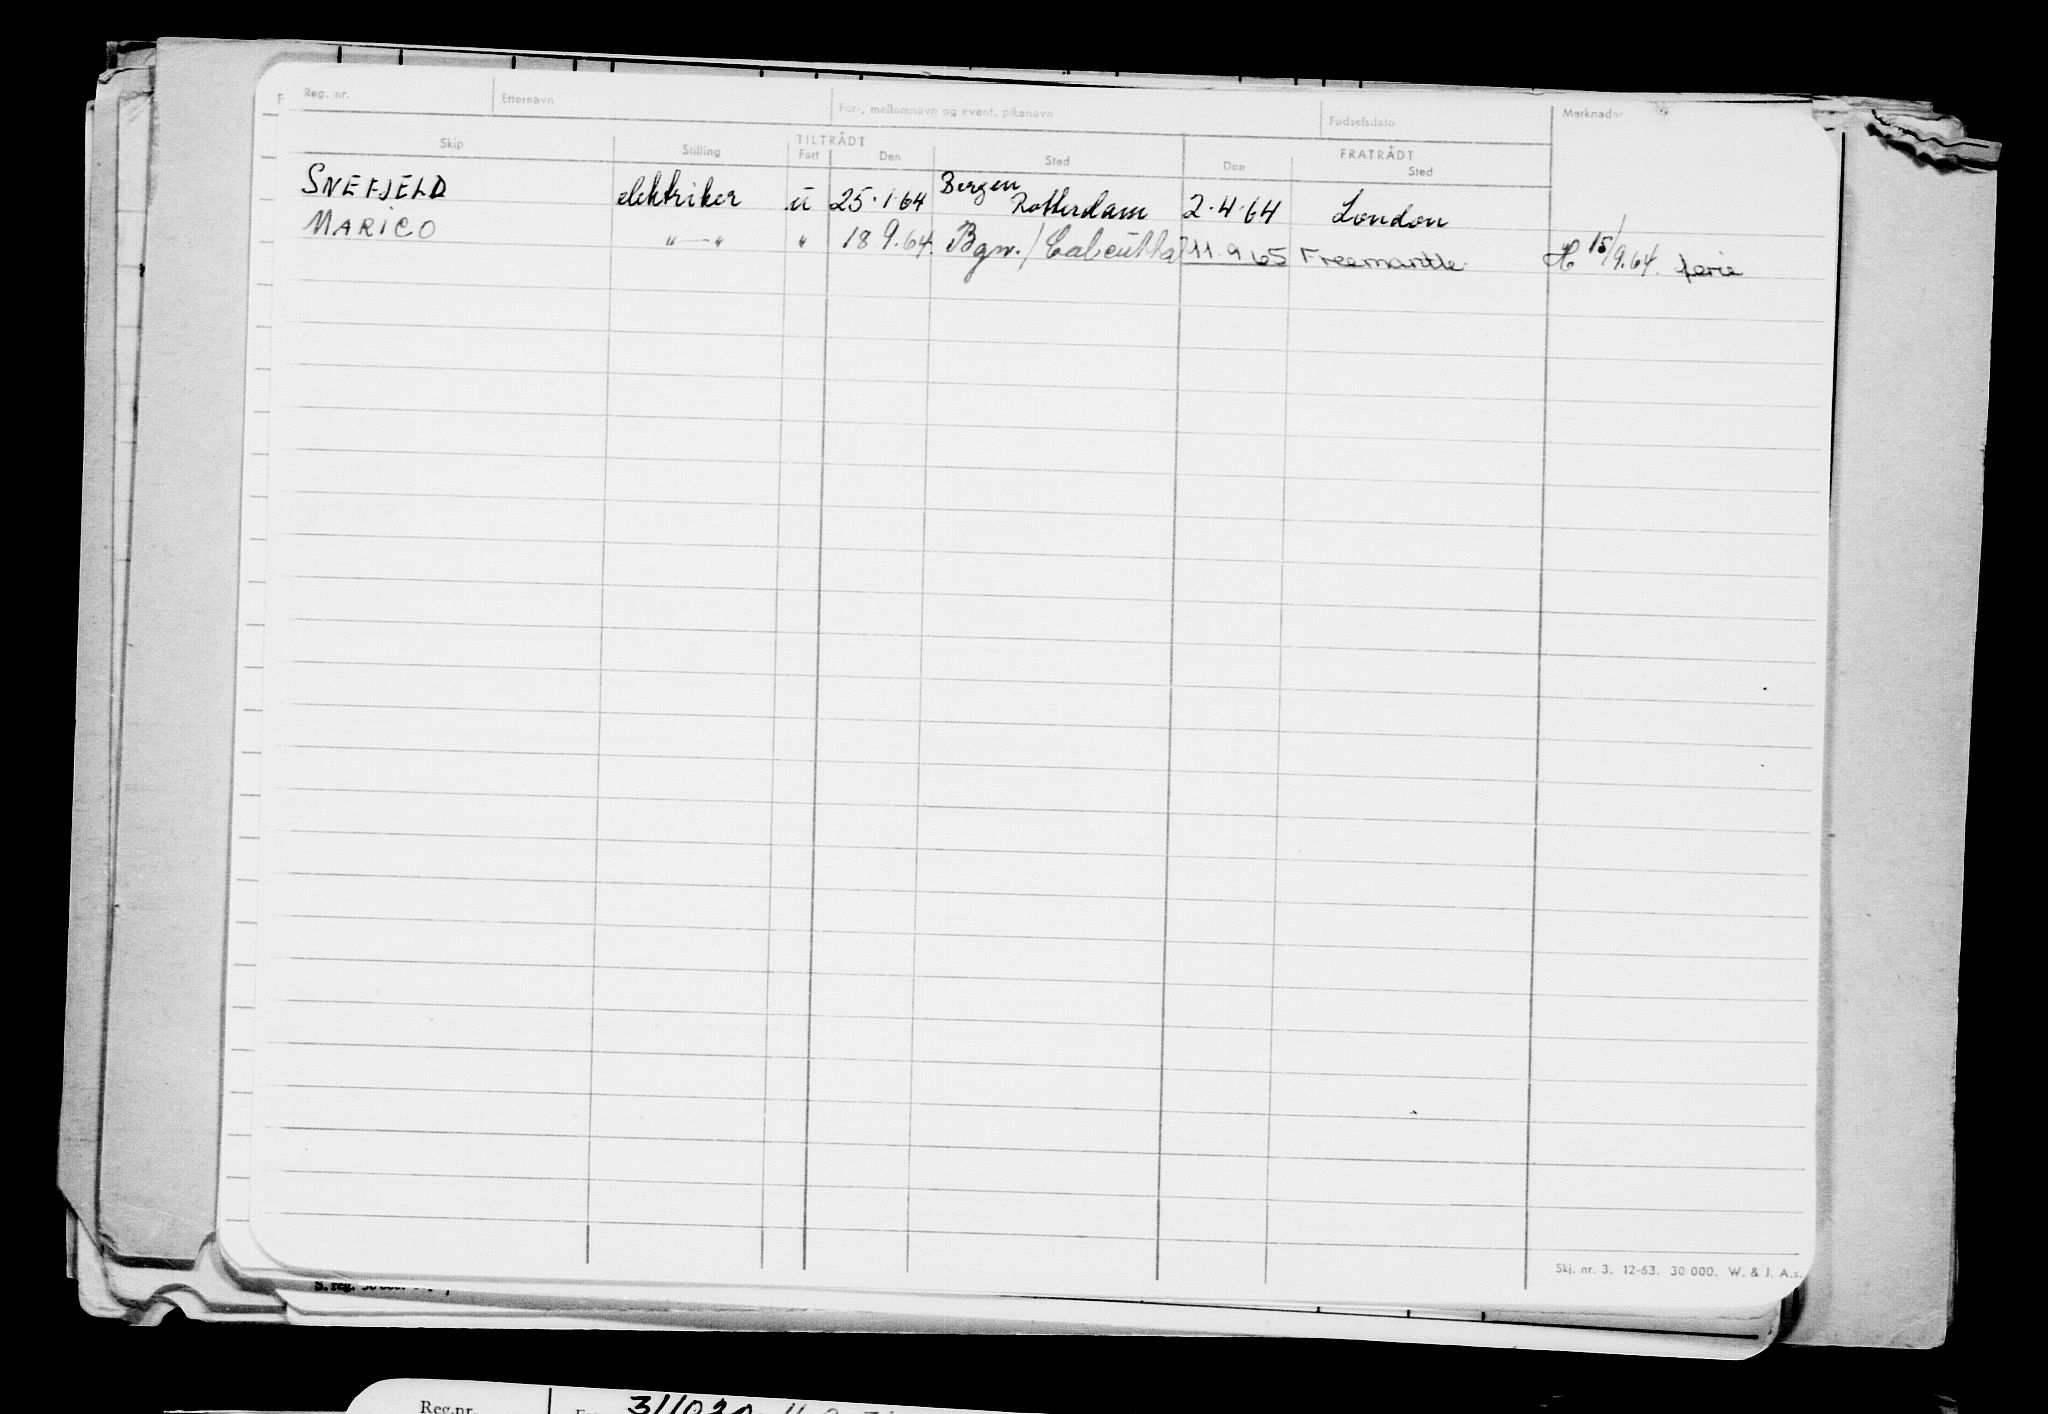 Reg. nr. Etternavn For-, mellomnavn og event. pikenavn Fødselsdato Merknader
TILTRÅDT FRATRÅDT
Skip Stilling Fart Den Sted Den Sted
SNEFJELD elektriker u 25.1.64 Bergen Rotterdam 2.4.64 London
MARICO " — " " 18 9.64. Bgn. / Calcutta 11.9 65 Freemantle. H 15/9.64. ferie
Skj. nr. 3. 12-63. 30 000. W. & J. A.s.
S. reg.
Reg.nr.